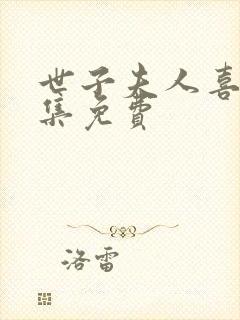 世子夫人喜
集免费
洛雷